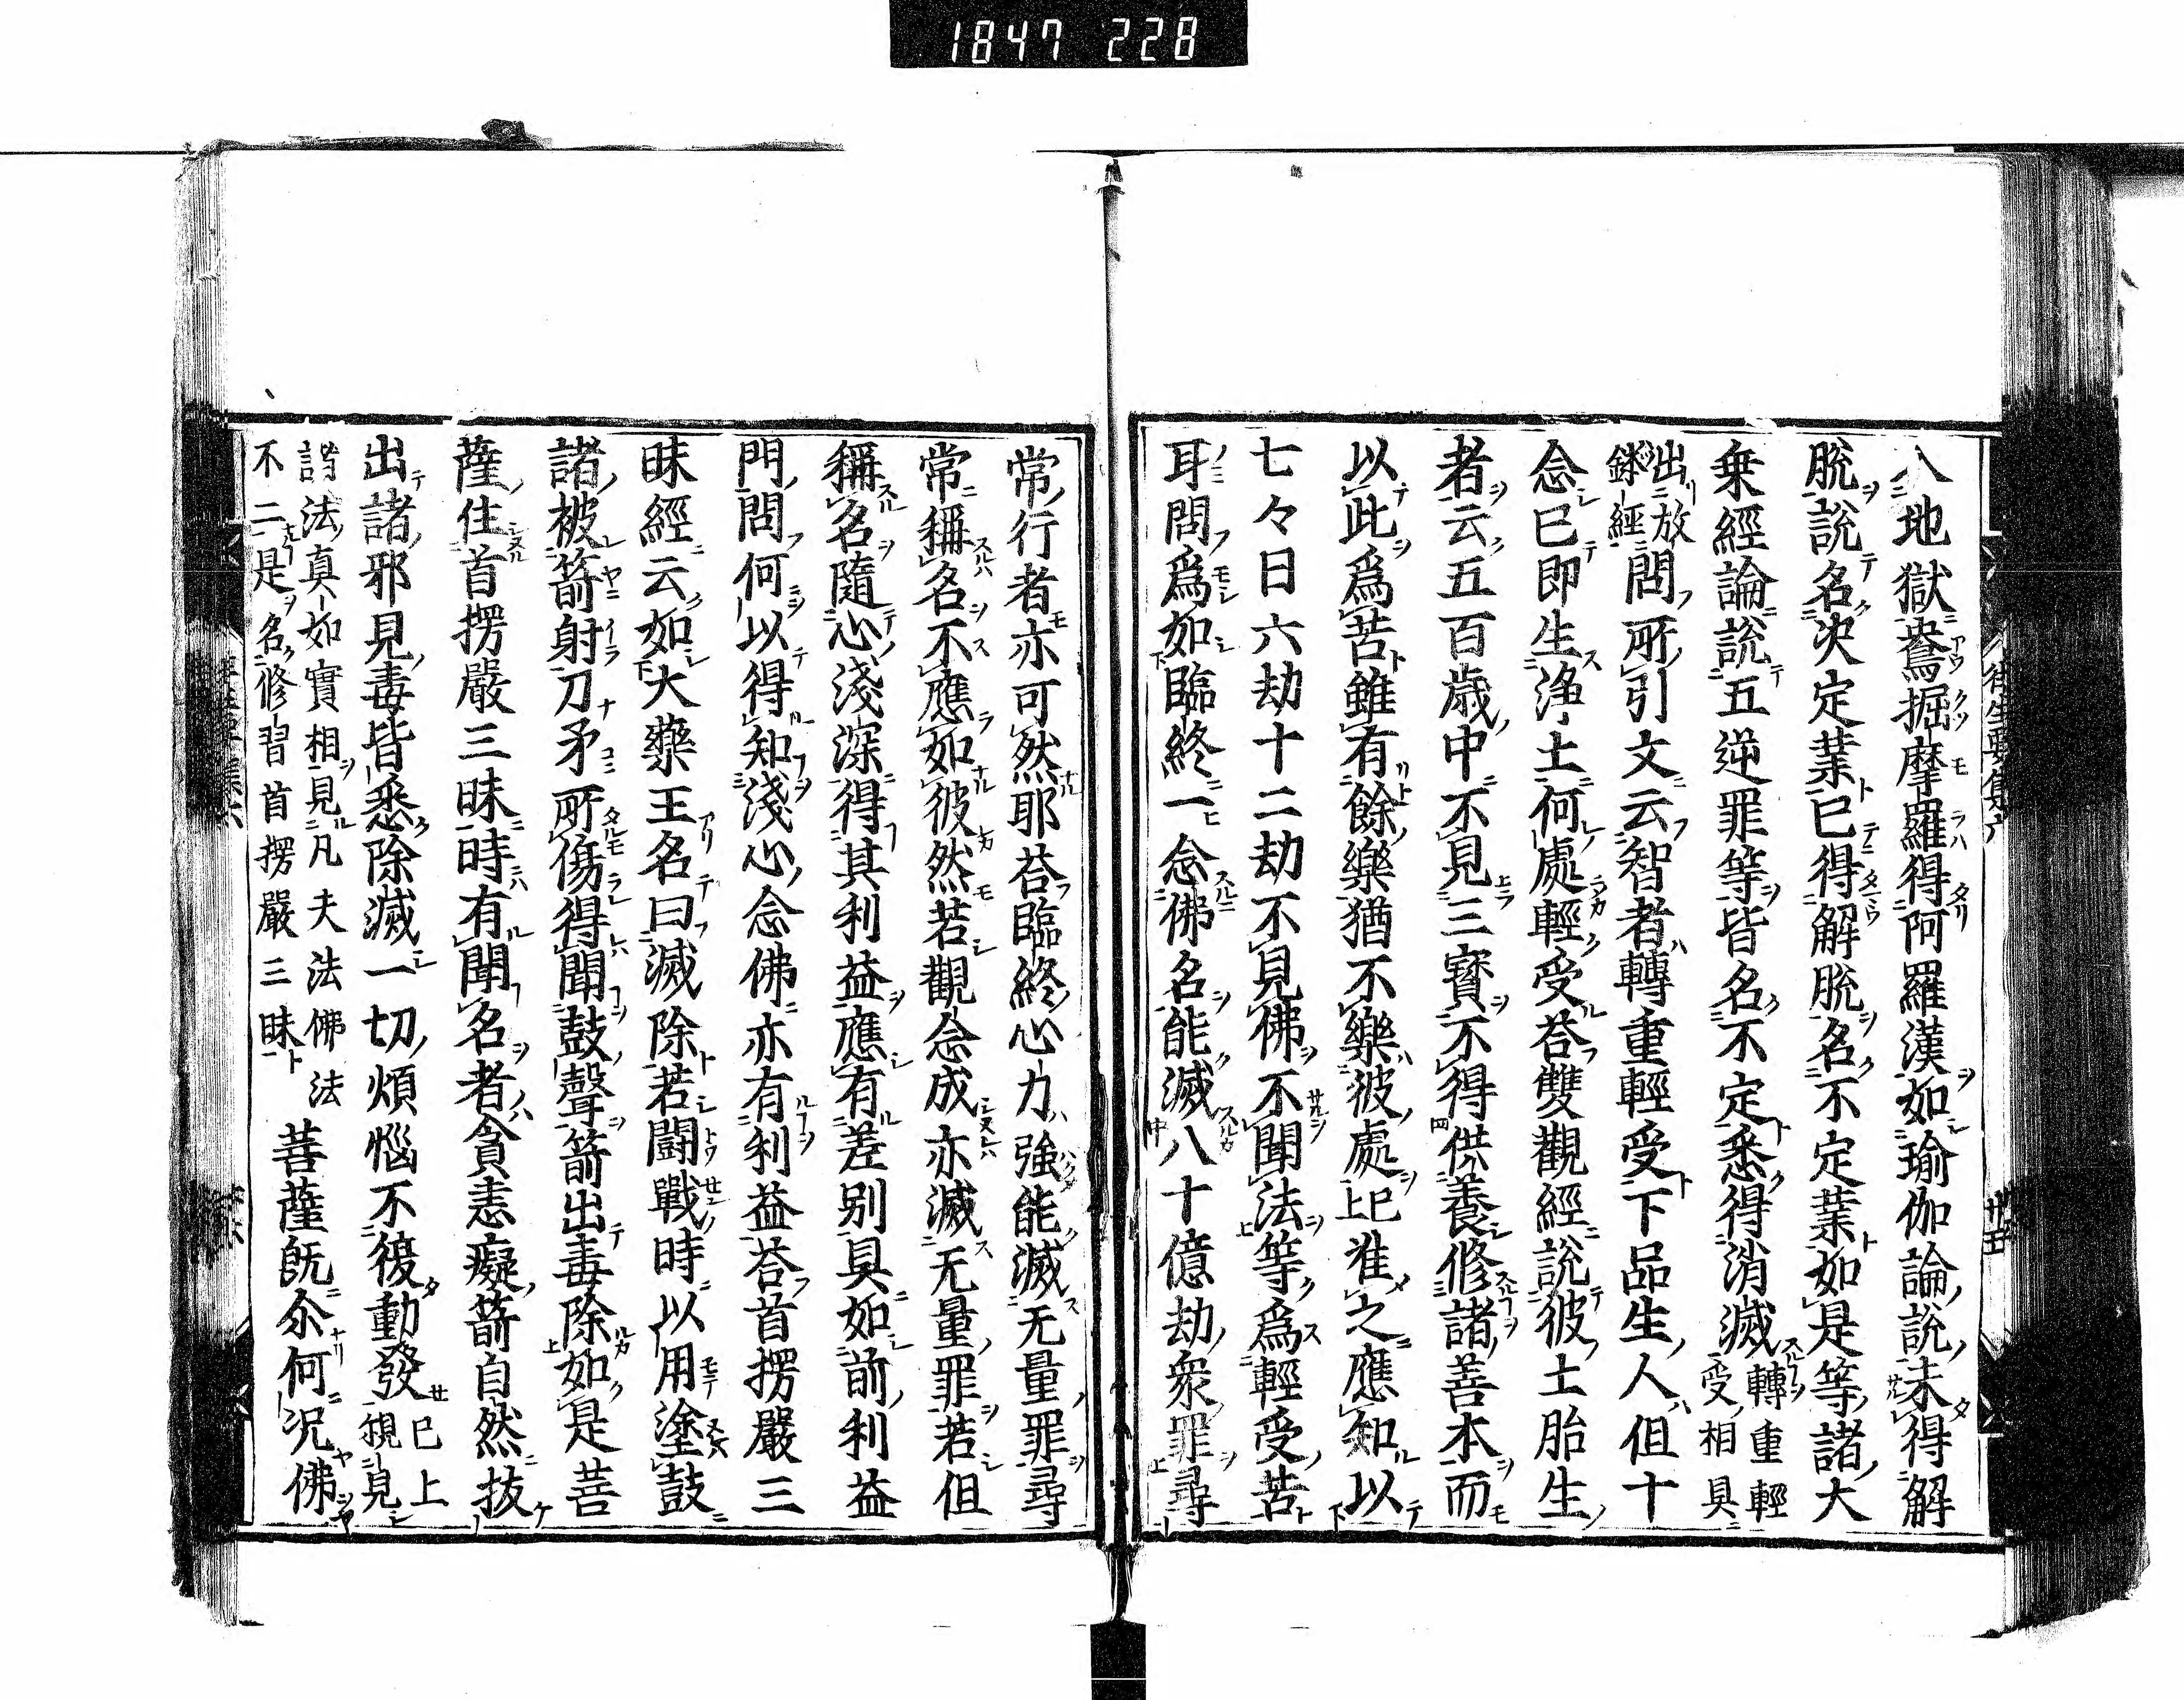 1847 228
入地獄鴦掘摩羅得阿羅漢如瑜伽論說未得解
脫說名决定業已得解脫名不定業如是等諸大
乗經論說五逆罪等皆名不定悉得消滅轉重輕
受相具
出放
鉢經問所引文云智者轉重輕受下品生人但十
念已即生浄土何處輕受荅雙觀經說彼土胎生
者云五百歳中不見三寳不得供養修諸善本而
以此爲苦雖有餘樂猶不樂彼處已上准之應知以
七々日六劫十二劫不見佛不聞法等爲輕受苦
耳問爲如臨終一念佛名能滅八十億劫衆罪尋
常行者亦可然耶荅臨終心力強能滅无量罪尋
常稱名不應如彼然若觀念成亦滅无量罪若但
稱名隨心淺深得其利益應有差别具如前利益
門問何以得知淺心念佛亦有利益荅首楞嚴三
昧經云如大藥王名曰滅除若闘戰時以用塗鼓
諸被箭射刀矛所傷得聞鼓聲箭出毒除如是菩
薩住首楞嚴三昧時有聞名者貪恚癡箭自然拔
出諸邪見毒皆悉除滅一切煩惱不復動發已上
觀見
諸法真如實相見凡夫法佛法
不二是名修習首楞嚴三昧菩薩既尒何况佛